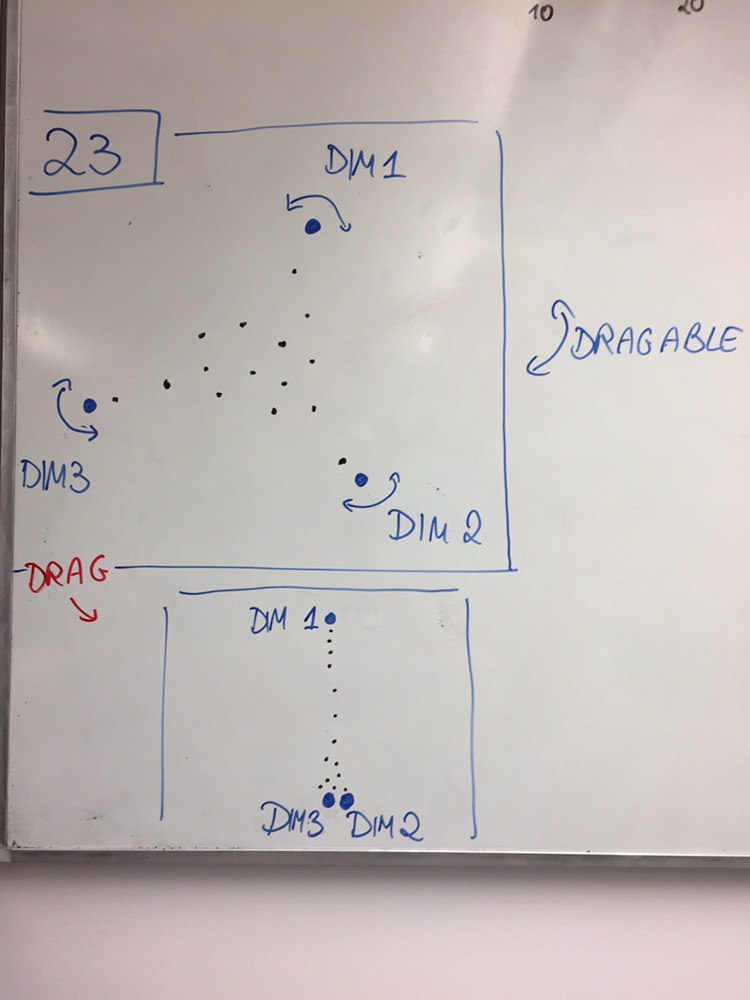 10 20
23
DIM 1
DRAGABLE
DIM3
DIM 2
DRAG
DIM 1
DIM3 DIM2